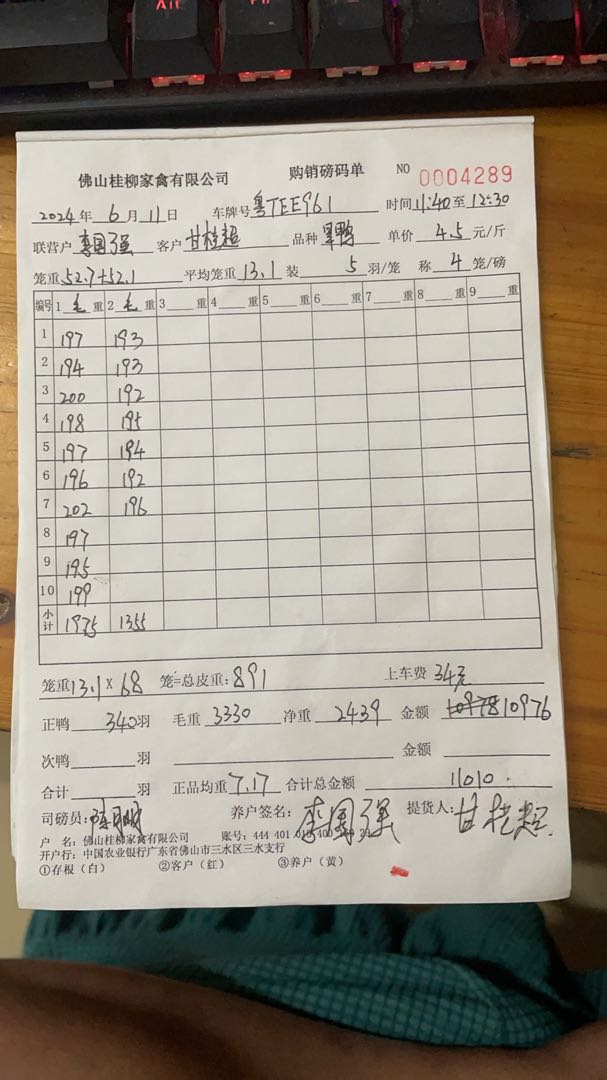 佛山桂柳家禽有限公司 购销磅码单 NO 0004289
2024年 6月 11日 车牌号 粤TEE961 时间 11:40至 12:30
联营户 李国强 客户 甘桂超 品种 单价 4.5 元/斤
笼重 52.7+52.1 平均笼重 13.1 装 5 羽/笼 称 4 笼/磅
编号 1 毛 重 2 毛 重 3 重 4 重 5 重 6 重 7 重 8 重 9 重
1 197 193
2 194 193
3 200 192
4 198 195
5 197 194
6 196 192
7 202 196
8 197
9 195
10 199
小计 1975 1355
笼重 13.1 X 68 笼=总皮重: 891 上车费 34元
正鸭 340羽 毛重 3330 净重 2439 金额 10976
次鸭 羽 金额
合计 羽 正品均重 7.17 合计总金额 11010.
司磅员: 养户签名: 李国强 提货人: 甘桂超
户 名: 佛山桂柳家禽有限公司 账号: 444 401 010 400
开户行: 中国农业银行广东省佛山市三水区三水支行
①存根(白) ②客户(红) ③养户(黄)